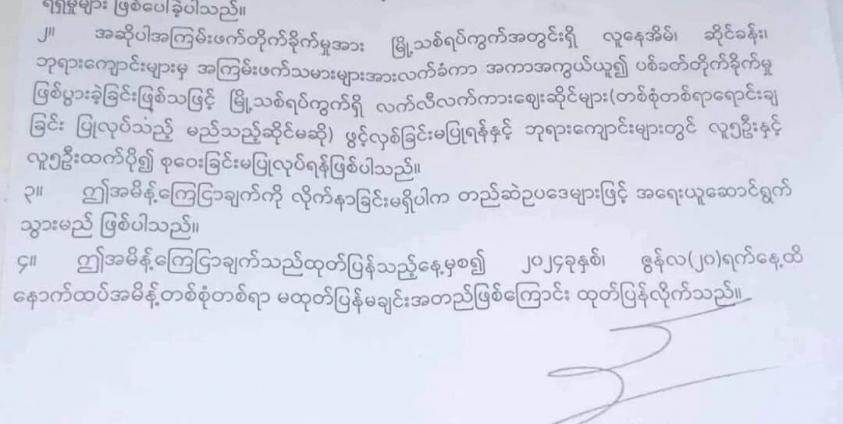 ရရှိမှုများ ဖြစ်ပေါ်ခဲ့ပါသည်။
၂။ အဆိုပါအကြမ်းဖက်တိုက်ခိုက်မှုအား မြို့သစ်ရပ်ကွက်အတွင်းရှိ လူနေအိမ်၊ ဆိုင်ခန်း၊
ဘုရားကျောင်းများမှ အကြမ်းဖက်သမားများအားလက်ခံကာ အကာအကွယ်ယူ၍ ပစ်ခတ်တိုက်ခိုက်မှု
ဖြစ်ပွားခဲ့ခြင်းဖြစ်သဖြင့် မြို့သစ်ရပ်ကွက်ရှိ လက်လီလက်ကားဈေးဆိုင်များ(တစ်စုံတစ်ရာရောင်းချ
ခြင်း ပြုလုပ်သည့် မည်သည့်ဆိုင်မဆို) ဖွင့်လှစ်ခြင်းမပြုရန်နှင့် ဘုရားကျောင်းများတွင် လူ၅ဦးနှင့်
လူ၅ဦးထက်ပို၍ စုဝေးခြင်းမပြုလုပ်ရန်ဖြစ်ပါသည်။
၃။ ဤအမိန့်ကြေငြာချက်ကို လိုက်နာခြင်းမရှိပါက တည်ဆဲဥပဒေများဖြင့် အရေးယူဆောင်ရွက်
သွားမည် ဖြစ်ပါသည်။
၄။ ဤအမိန့်ကြေငြာချက်သည်ထုတ်ပြန်သည့်နေ့မှစ၍ ၂၀၂၄ခုနှစ်၊ ဇွန်လ(၂၀)ရက်နေ့ထိ
နောက်ထပ်အမိန့်တစ်စုံတစ်ရာ မထုတ်ပြန်မချင်းအတည်ဖြစ်ကြောင်း ထုတ်ပြန်လိုက်သည်။